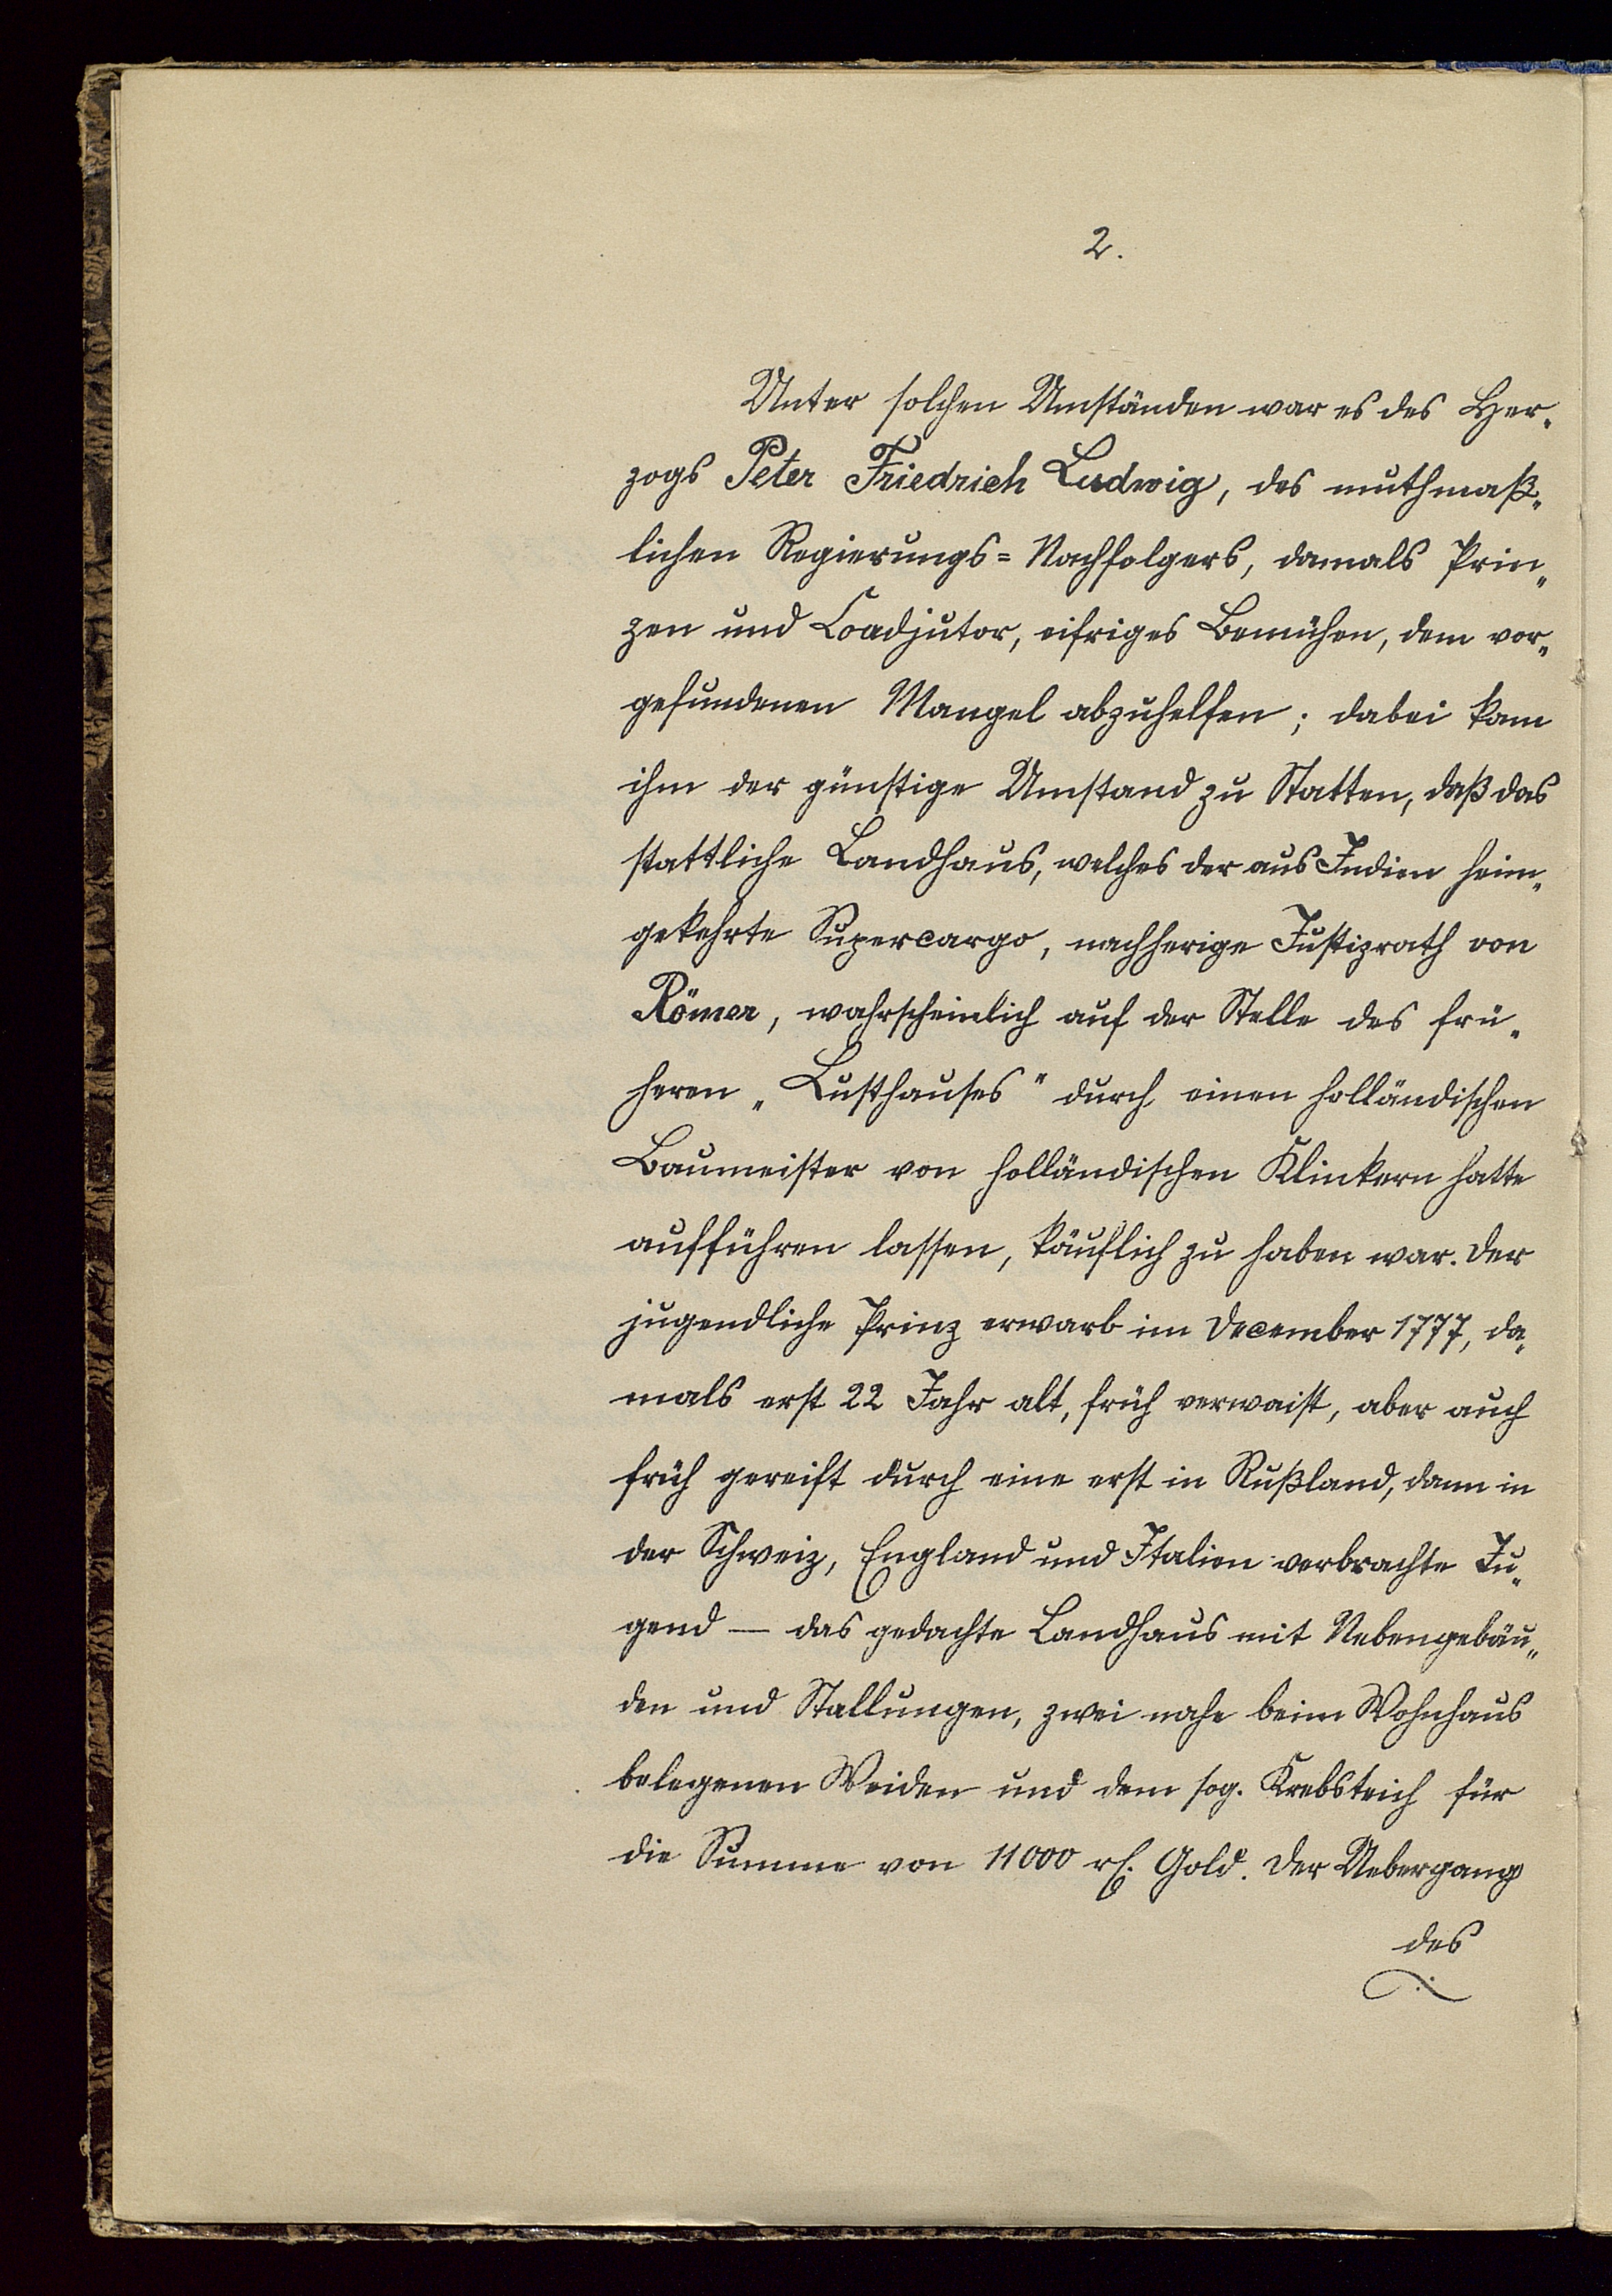 2.
Unter solchen Umständen war es des Her-
zogs Peter Friedrich Ludwig, des muthmaß-
lichen Regierungs=Nachfolgers, damals Prin-
zen und Coadjutor, eifriges Bemühen, dem vor-
gefundenen Mangel abzuhelfen; dabei kam
ihm der günstige Umstand zu Statten, daß das
stattliche Landhaus, welches der aus Indien heim-
gekehrte Supercargo, nachherige Justizrath von
Römer, wahrscheinlich auf der Stelle des frü-
heren „Lusthauses" durch einen holländischen
Baumeister von holländischen Klinkern hatte
aufführen lassen, käuflich zu haben war. Der
jugendliche Prinz erwarb im December 1777, da-
mals erst 22 Jahr alt, früh verwaist, aber auch
früh gereift durch eine erst in Rußland, dann in
der Schweiz, England und Italien verbrachte Ju-
gend — das gedachte Landhaus mit Nebengebäu-
den und Stallungen, zwei nahe beim Wohnhaus
belegenen Weiden und dem sog. Krebsteich für
die Summe von 11000 rƒ. Gold. Der Uebergang
des